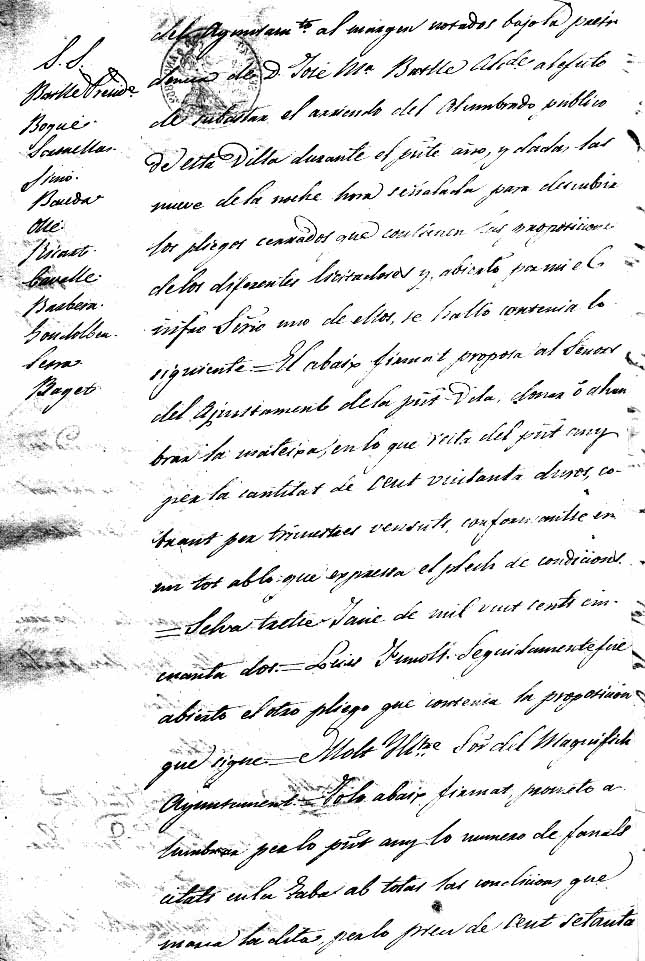 S. S.
Batlle Presidte.
Bogué.
Simó.
Barberá.
Serra
Baget
del Ayuntamto. al margen notados bajo la presi
dencia de D. José Ma. Batlle Alcde. al efecto
de subastar el arriendo del Alumbrado publico
de esta Villa durante el pnte. año, y dadas las
nueve de la noche hora señalada para descubrir
los pliegos cerrados que contienen las proposiciones
de los diferentes licitadores y, abierto por mi el
infro. Srio. uno de ellos, se halló contenia lo
siguiente = El abaix firmat proposa al Señors
del Ajuntament de la pnt. Vila, donar ó alum
brar la mateixa, en lo que resta del pnt. any
per la cantitat de Cent vuitanta duros, co-
brant per trimestres vensuts, conformantse en
un tot ab lo que expressa el plech de condicions.
= Selva tretse Jané de mil vuit cents cin-
cuanta dos. = Luis Seguidamente fue
abierto el otro pliego que contenia la proposicion
que sigue = Molt Iltre. Sor. del Magnifich
Ayuntament = Jo lo abaix firmat, prometo a
lumbrar per lo pnt. any lo numero de fanals
citats en la Taba ab totas las condicions que
marca la dita, per lo preu de Cent setanta